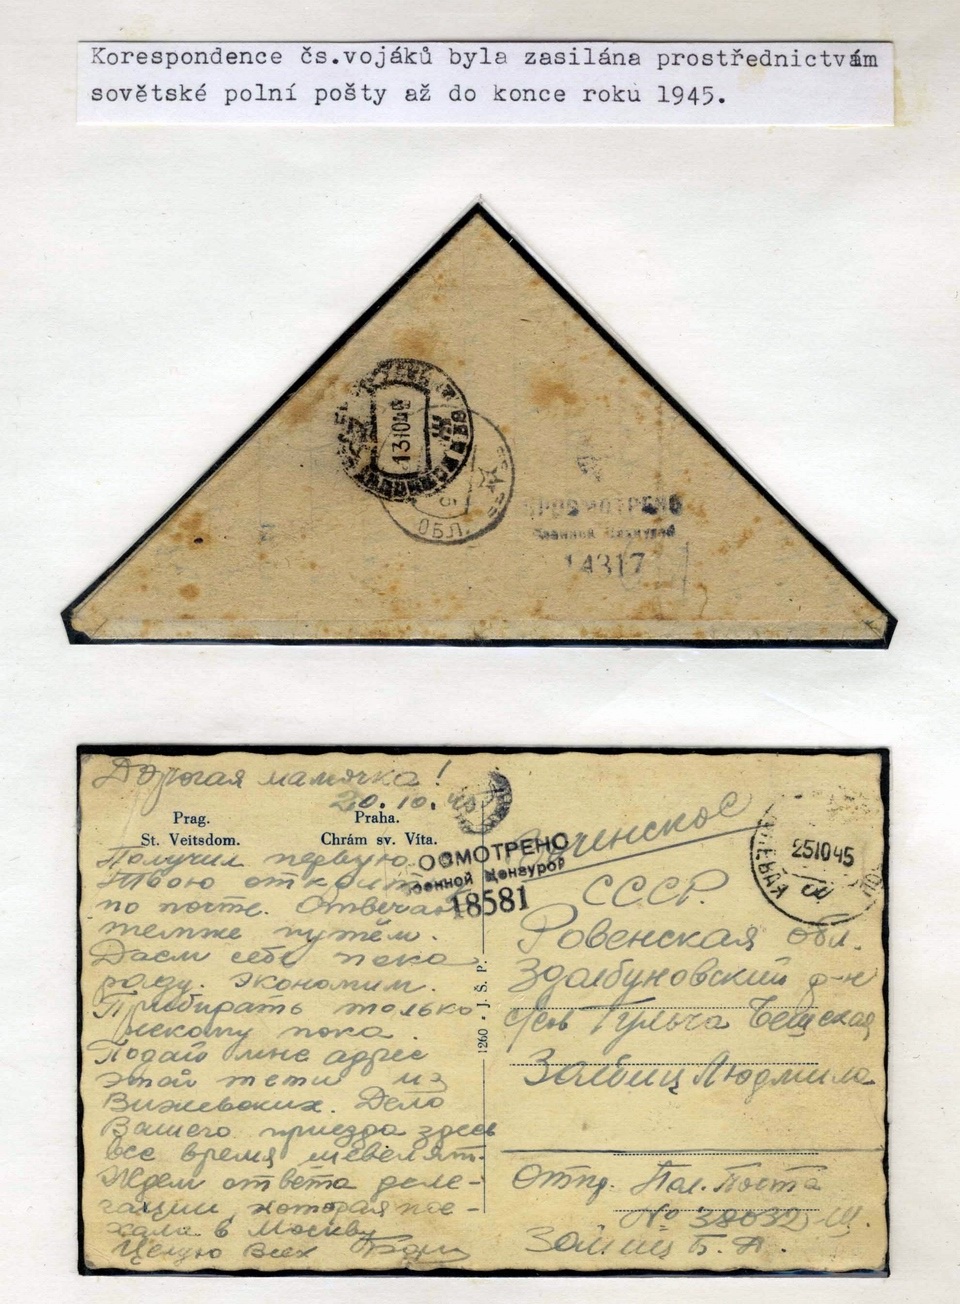 Korespondence čs.vojáků byla zasílána prostřednictvám
sovětské polní pošty až do konce roku 1945.
131045
ОБЛ.
ПРОСМОТРЕНО
Военной Цензурой
14317
Дорогая мамочка!
20.10.45
Prag.
St. Veitsdom.
Praha.
Chrám sv. Víta.
Получил первую
Твою открытку
по почте. Отвечаю
темже путём.
Даем себе пока
раду. Экономим.
Прибирать только
некому пока.
Подай мне адрес
этой тети из
Вижевских. Дело
Вашего приезда здесь
все время шевелят.
Ждем ответа деле-
гации, которая пое-
хала в Москву
Целую Всех
ОСМОТРЕНО
военной Цензурой
18581
1260 - J. Š. P.
251045
СССР.
Ровенская обл.
Здолбуновский р-н
Гульча Чешская
Людмила
Отпр. Пол. Почта
№ 38032-Ш.
Б. А.